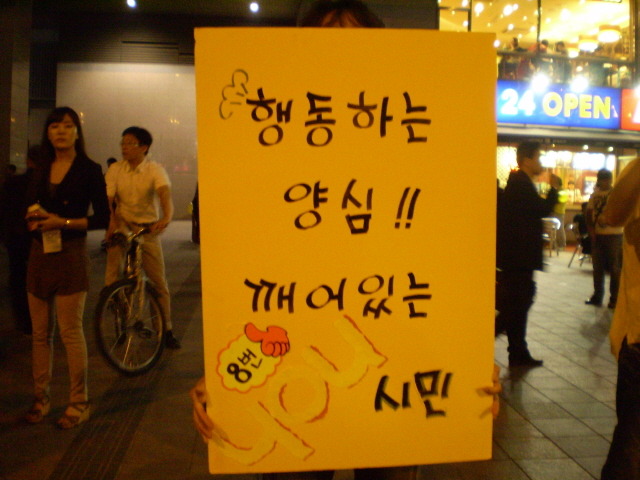 행동하는
양심!!
깨어있는
시민
8번
you
24 OPEN